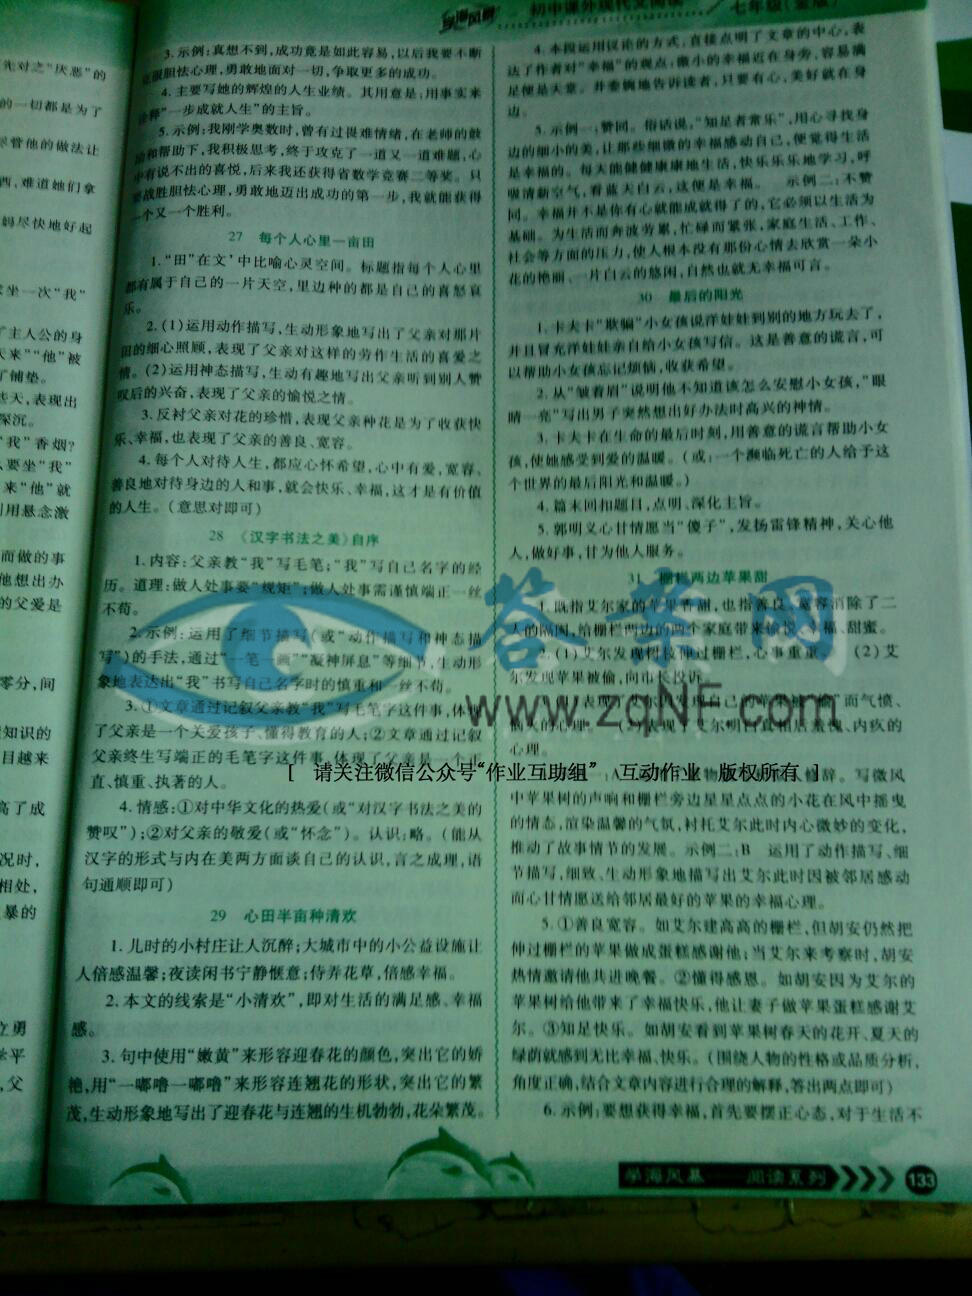 先对之“厌恶”的
的一切都是为了
尽管他的做法让
西,难道她们拿
妈尽快地好起
坐一次“我”
了主人公的身
天来”“他”被
了铺垫。
些天,表现出
深沉。
“我”香烟?
么要坐“我”
来“他”就
利用悬念激
而做的事
他想出办
的父爱是
零分,间
知识的
目越来
高了成
况时,
相处,
暴的
立勇
学平
,父
学海风暴 初中课外现代文阅读 七年级(金版)
3. 示例:真想不到,成功竟是如此容易,以后我要不断
克服胆怯心理,勇敢地面对一切,争取更多的成功。
4. 主要写她的辉煌的人生业绩。其用意是:用事实来
诠释“一步成就人生”的主旨。
5. 示例:我刚学奥数时,曾有过畏难情绪,在老师的鼓
励和帮助下,我积极思考,终于攻克了一道又一道难题,心
中有说不出的喜悦,后来我还获得省数学竞赛二等奖。只
要战胜胆怯心理,勇敢地迈出成功的第一步,我就能获得
一个又一个胜利。
27 每个人心里一亩田
1. “田”在文中比喻心灵空间。标题指每个人心里
都有属于自己的一片天空,里边种的都是自己的喜怒哀
乐。
2. (1)运用动作描写,生动形象地写出了父亲对那片
田的细心照顾,表现了父亲对这样的劳作生活的喜爱之
情。(2)运用神态描写,生动有趣地写出父亲听到别人赞
叹后的兴奋,表现了父亲的愉悦之情。
3. 反衬父亲对花的珍惜,表现父亲种花是为了收获快
乐、幸福,也表现了父亲的善良、宽容。
4. 每个人对待人生,都应心怀希望,心中有爱,宽容、
善良地对待身边的人和事,就会快乐、幸福,这才是有价值
的人生。(意思对即可)
28 《汉字书法之美》自序
1. 内容:父亲教“我”写毛笔;“我”写自己名字的经
历。道理:做人处事要“规矩”;做人处事需谨慎端正一丝
不苟。
2. 示例:运用了细节描写(或“动作描写和神态描
写”)的手法,通过“一笔一画”“凝神屏息”等细节,生动形
象地表达出“我”书写自己名字时的慎重和一丝不苟。
3. ①文章通过记叙父亲教“我”写毛笔字这件事,体现
了父亲是一个关爱孩子、懂得教育的人;②文章通过记叙
父亲终生写端正的毛笔字这件事,体现了父亲是一个正
直、慎重、执著的人。
4. 情感:①对中华文化的热爱(或“对汉字书法之美的
赞叹”);②对父亲的敬爱(或“怀念”)。认识:略。(能从
汉字的形式与内在美两方面谈自己的认识,言之成理,语
句通顺即可)
29 心田半亩种清欢
1. 儿时的小村庄让人沉醉;大城市中的小公益设施让
人倍感温馨;夜读闲书宁静惬意;侍弄花草,倍感幸福。
2. 本文的线索是“小清欢”,即对生活的满足感、幸福
感。
3. 句中使用“嫩黄”来形容迎春花的颜色,突出它的娇
艳,用“一嘟噜一嘟噜”来形容连翘花的形状,突出它的繁
茂,生动形象地写出了迎春花与连翘的生机勃勃,花朵繁茂。
4. 本段运用议论的方式,直接点明了文章的中心,表
达了作者对“幸福”的观点:微小的幸福近在身旁,容易满
足便是天堂。并委婉地告诉读者,只要有心,美好就在身
边。
5. 示例一:赞同。俗话说,“知足者常乐”,用心寻找身
边的细小的美,让那些细微的幸福感动自己,便觉得生活
是幸福的。每天能健健康康地生活,快乐乐乐地学习,呼
吸清新空气,看蓝天白云,这便是幸福。 示例二:不赞
同。幸福并不是你有心就能成就得了的,它必须以生活为
基础。为生活而奔波劳累,忙碌而紧张,家庭生活、工作、
社会等方面的压力,使人根本没有那份心情去欣赏一朵小
花的艳丽、一片白云的悠闲,自然也就无幸福可言。
30 最后的阳光
1. 卡夫卡“欺骗”小女孩说洋娃娃到别的地方玩去了,
并且冒充洋娃娃亲自给小女孩写信。这是善意的谎言,可
以帮助小女孩忘记烦恼,收获希望。
2. 从“皱着眉”说明他不知道该怎么安慰小女孩,“眼
睛一亮”写出男子突然想出好办法时高兴的神情。
3. 卡夫卡在生命的最后时刻,用善意的谎言帮助小女
孩,使她感受到爱的温暖。(或:一个濒临死亡的人给予这
个世界的最后阳光和温暖。)
4. 篇末回扣题目,点明、深化主旨。
5. 郭明义心甘情愿当“傻子”,发扬雷锋精神,关心他
人,做好事,甘为他人服务。
31 栅栏两边苹果甜
1. 既指艾尔家的苹果香甜,也指善良、宽容消除了二
人的隔阂,给栅栏两边的两个家庭带来愉悦、幸福、甜蜜。
2. (1)艾尔发现树枝伸过栅栏,心事重重。 (2)艾
尔发现苹果被偷,向市长投诉。
3. (1)表现了艾尔因发现自己的苹果被“偷”而气愤、
恼火的心理。(2)表现了艾尔明白真相后羞愧、内疚的
心理。
A 物 修辞。写微风
中苹果树的声响和栅栏旁边星星点点的小花在风中摇曳
的情态,渲染温馨的气氛,衬托艾尔此时内心微妙的变化,
推动了故事情节的发展。示例二:B 运用了动作描写、细
节描写,细致、生动形象地描写出艾尔此时因被邻居感动
而心甘情愿送给邻居最好的苹果的幸福心理。
5. ①善良宽容。如艾尔建高高的栅栏,但胡安仍然把
伸过栅栏的苹果做成蛋糕感谢他;当艾尔来考察时,胡安
热情邀请他共进晚餐。②懂得感恩。如胡安因为艾尔的
苹果树给他带来了幸福快乐,他让妻子做苹果蛋糕感谢艾
尔。③知足快乐。如胡安看到苹果树春天的花开、夏天的
绿荫就感到无比幸福、快乐。(围绕人物的性格或品质分析,
角度正确,结合文章内容进行合理的解释,答出两点即可)
6. 示例:要想获得幸福,首先要摆正心态,对于生活不
答案网
www.zqNF.com
[ 请关注微信公众号“作业互助组” 互动作业 版权所有 ]
学海风暴 阅读系列 133